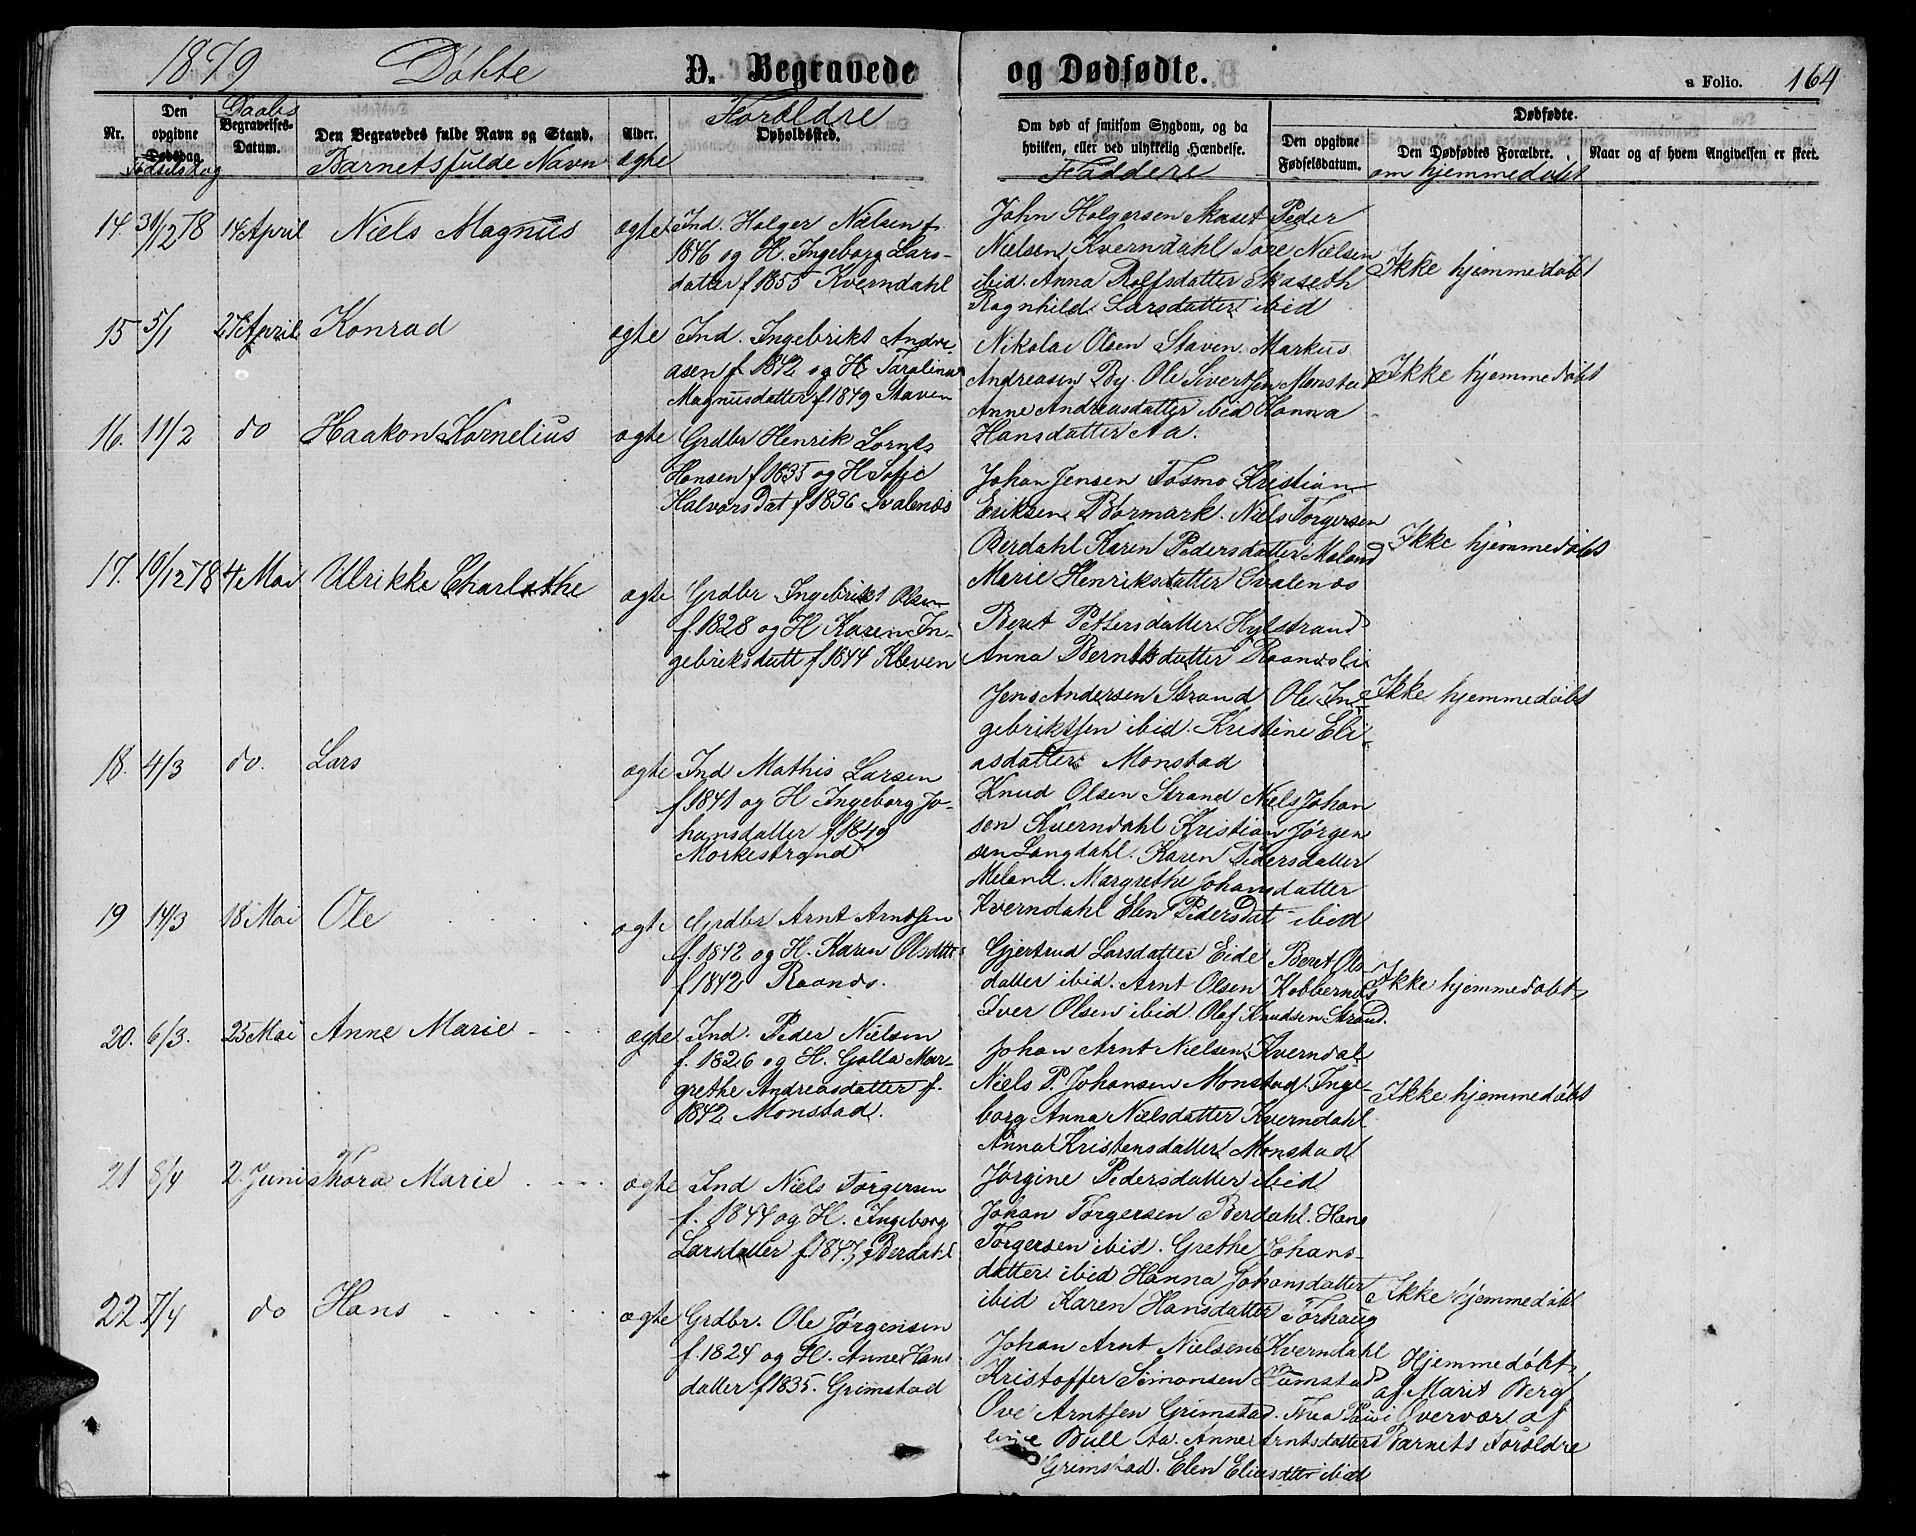 1879 Döbte D. Begravede og Dødfødte. a Folio. 164
Nr.
Den opgivne Dødsdag.
Fødselsdag
Daabs
Begravelses-Datum.
Den Begravedes fulde Navn og Stand.
Barnets fulde Navn
Alder.
ægte
Forældre
Opholdssted.
Om død af smitsom Sygdom, og da
hvilken, eller ved ulykkelig Hændelse.
Faddere
Dødfødte.
Den opgivne
Fødselsdatum.
Den Dødfødtes Forældre.
om hjemmedøbt
Naar og af hvem Angivelsen er skeet.
14. 31/12 78 14 April Niels Magnus ægte
Ind. Holger Nielsen f
1846 og H. Ingeborg Lars-
datter f 1855 Kverndahl
John Holgersen Skaset Peder
Nielsen Kverndahl Tore Nielsen
ibid. Anna Rolfsdatter Skaseth
Ragnhild Larsdatter ibid
Ikke hjemmedöbt
15 5/1 27 April Konrad ægte
Ind. Ingebrikt Andre-
asen f 1842 og H.
Magnusdatter f 1849 Staven
Nikolai Olsen Staven. Markus
Andreasen By. Ole Sivertsen Monstad
Anne Andreasdatter ibid Hanna
Hansdatter Aa.
Ikke hjemmedöbt
16. 11/2 do Haakon Kornelius ægte
Grdbr Henrik Lornts
Hansen f 1835 og H Sofie
Halvorsdat f 1836 Svalenæs
Johan Jensen Fosmo Kristian
Eriksen Bormark. Niels Torgersen
Berdahl Karen Pedersdatter Meland
Marie Henriksdatter Svalenæs
Ikke hjemmedöbt
17. 19/12 78 4 Mai Ulrikke Charlothe ægte
Grdbr Ingebrikt Olsen
f. 1828 og H Karen In-
gebriksdatt f 1844 Kleven
Beret Pettersdatter Hylstrand
Anna Berntsdatter Raandsli
Jens Andersen Strand Ole In-
gebriktsen ibid. Kristine Eli-
asdatter Monstad
Ikke hjemmedöbt
18. 4/3 do. Lars ægte
Ind Mathis Larsen
f 1841 og H Ingeborg Jo-
hansdatter f 1849
Morkestrand
Knud Olsen Strand Niels Johan
sen Kverndahl Kristian Jørgen
sen Langdahl. Karen Pedersdatter
Meland. Margrethe Johansdatter
Kverndahl Elen Pedersdat ibid
19 14/3 18 Mai Ole ægte
Grdbr Arnt Arntsen
f. 1842 og H. Karen Olsdtter
f 1842 Raands.
Gjertrud Larsdatter Eide Beret Ols-
datter ibid. Arnt Olsen Kobbernæs
Iver Olsen ibid Olaf Knudsen Strand.
Ikke hjemmedöbt
20. 6/3. 25 Mai Anne Marie ægte
Ind. Peder Nielsen
f. 1826 og H. Golla Mar-
grethe Andreasdatter f.
1842 Monstad.
Johan Arnt Nielsen Kverndal
Niels P. Johansen Monstad. Inge-
borg Anna Nielsdatter Kverndahl
Anna Kristensdatter Monstad
Jørgine Pedersdatter ibid
Ikke hjemmedöbt
21 8/4 2. Juni Thora Marie ægte
Ind Niels Torgersen
f. 1844 og H. Ingeborg
Larsdatter f 1847, Berdahl
Johan Torgersen Berdahl. Hans
Torgersen ibid. Grethe Johans-
datter ibid Hanna Johansdatter
ibid Karen Hansdatter Torhaug
Ikke hjemmedöbt
22 7/4 do Hans ægte
Grdbr. Ole Jørgensen
f. 1824 og H. Anne Hans
datter f 1835. Grimstad
Johan Arnt Nielsen Kverndahl
Kristoffer Simonsen
Ove Arntsen Grimstad. Thea Pau
line Bull Aa. Anne Arntsdatter
Grimstad. Elen Eliasdatter ibid
Hjemmedöbt
af Marit Berg
i Overvær af
Barnets Forældre